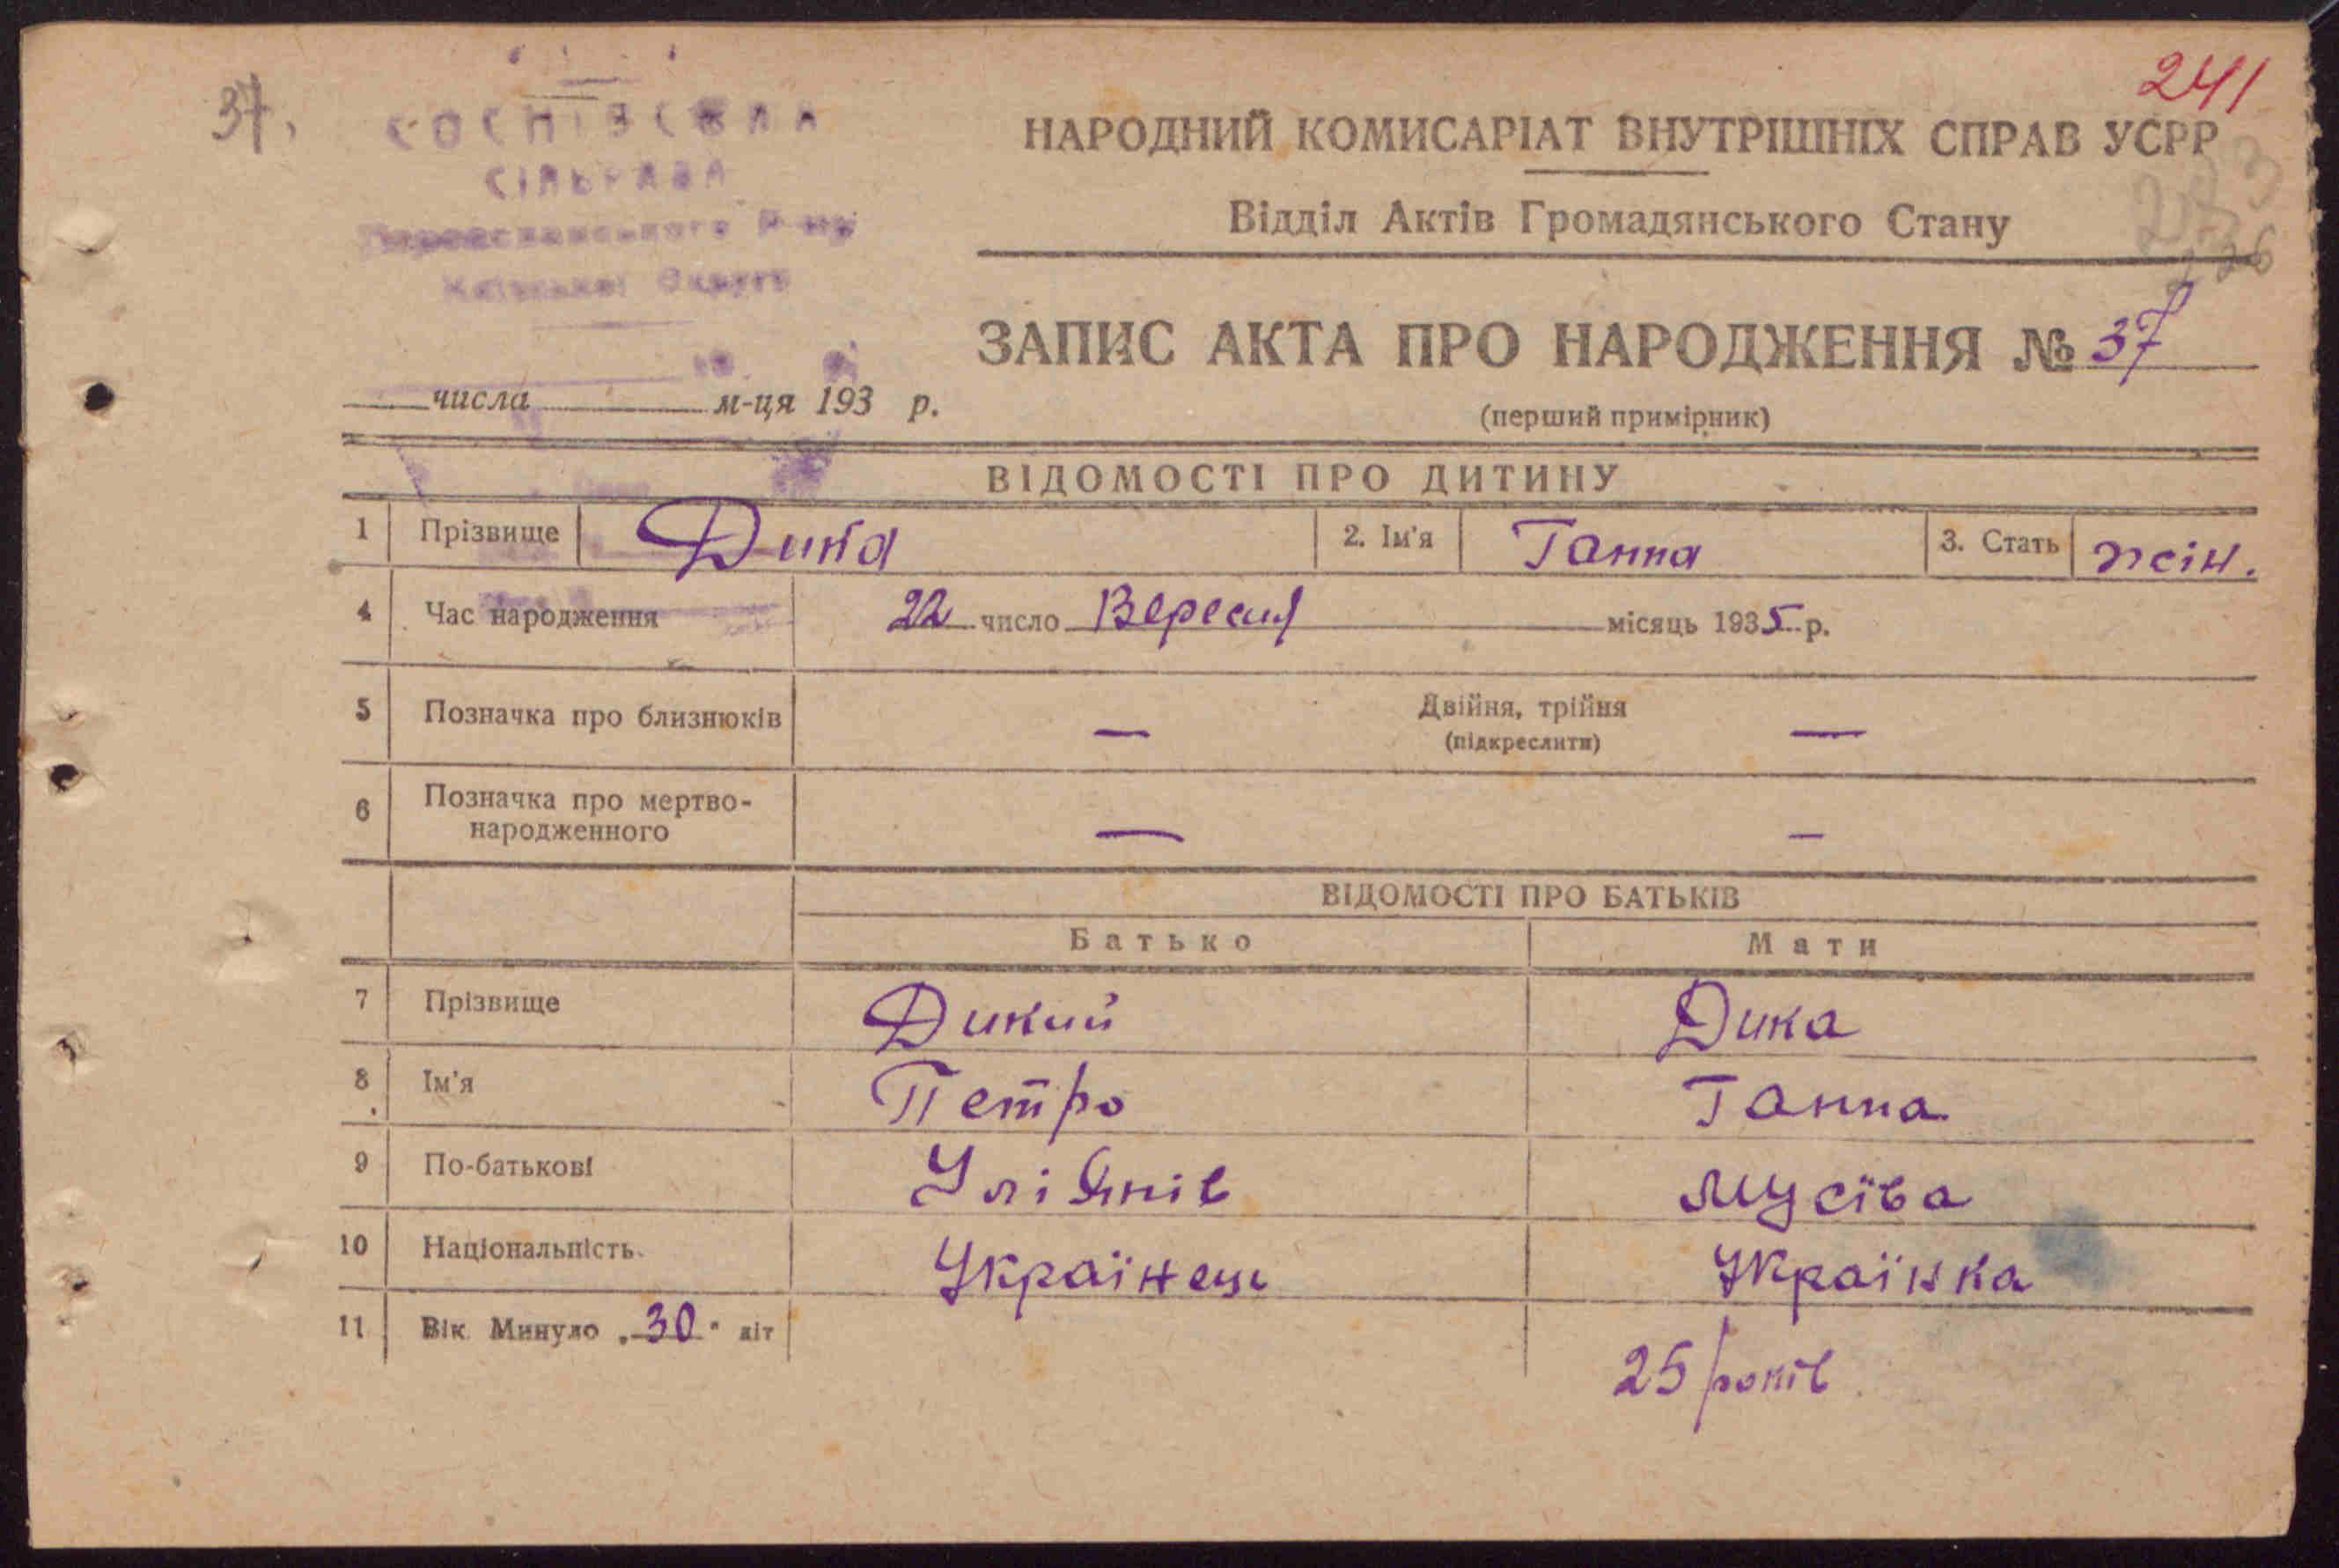 241
37.
СОСНІВСЬКА
СІЛЬРАДА
Переяславського Р-ну
Київської Округи
НАРОДНИЙ КОМИСАРІАТ ВНУТРІШНІХ СПРАВ УСРР
Відділ Актів Громадянського Стану
226
ЗАПИС АКТА ПРО НАРОДЖЕННЯ № 37
числа м-ця 193 р.
(перший примірник)
ВІДОМОСТІ ПРО ДИТИНУ
1 Прізвище Дика 2. Ім'я Ганна 3. Стать жін.
4 Час народження 22 число Вересня місяць 1935 р.
5 Позначка про близнюків — Двійня, трійня —
(підкреслити)
6 Позначка про мертво-
народженного — —
ВІДОМОСТІ ПРО БАТЬКІВ
Батько Мати
7 Прізвище Дикий Дика
8 Ім'я Петро Ганна
9 По-батькові Уліянів Мусіва
10 Національність Українець Українка
11 Вік Минуло „30" літ
25 років